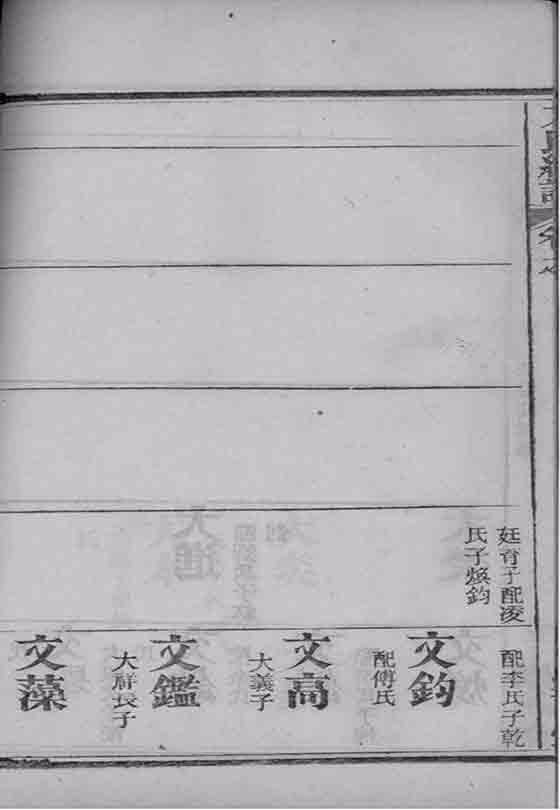 廷育子配凌
氏子煥鈞
配李氏子乾
文鈞
配傅氏
文高
大義子
文鑑
大祥長子
文藻